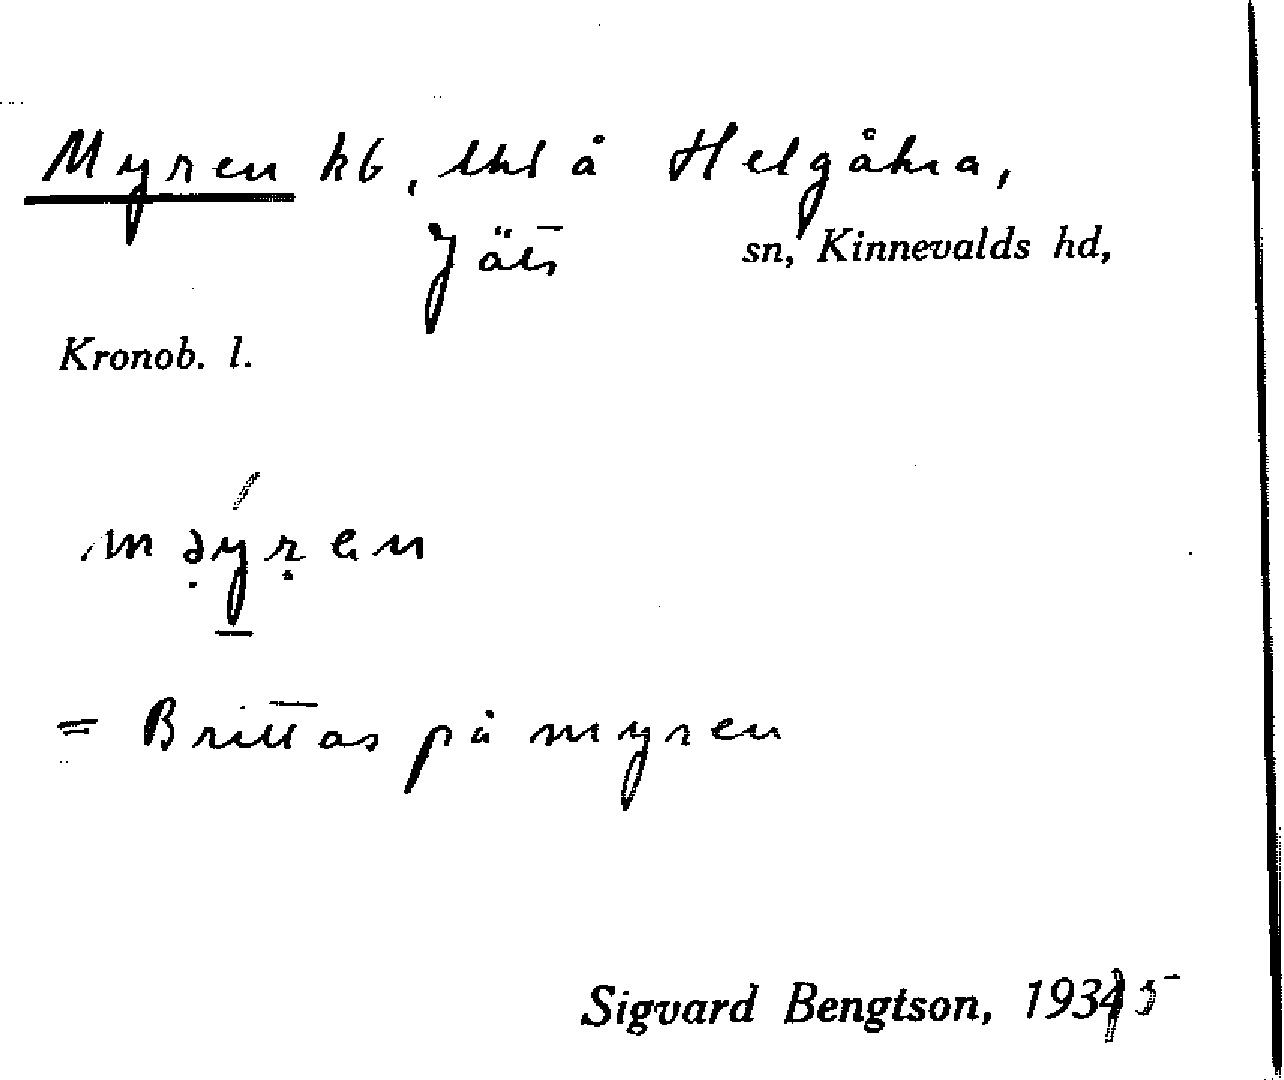 Myren kb, lhl å Helgåkra,
Jäts sn, Kinnevalds hd,
Kronob. l.
məyren
= Brittas på myren
Sigvard Bengtson, 1935